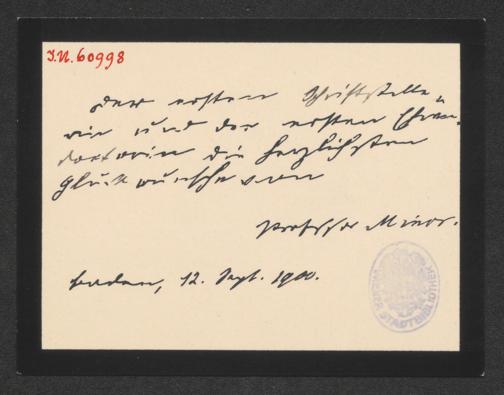 I.N. 60998
Der ersten Schriftstelle-
rin und der ersten Ehren-
doctorin die herzlichsten
Glückwünsche von
Professor Minor.
Baden, 12. Sept. 1900.
WIENER STADTBIBLIOTHEK